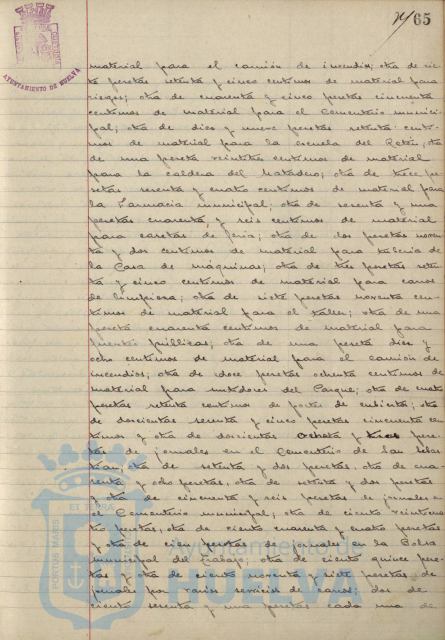 65
AYUNTAMIENTO DE HUELVA
material para el camión de incendios; otra de sie
te pesetas setenta y cinco centimos de material para
riegos; otra de cuarenta y cinco pesetas cincuenta
centimos de material para el Cementerio munici
pal; otra de diez y nueve pesetas setenta centi
mos de material para la escuela del ; otra
de una peseta veintitres centimos de material
para la caldera del Matadero; otra de trece pe
setas sesenta y cuatro centimos de material para
la Farmacia municipal; otra de sesenta y una
pesetas cuarenta y seis centimos de material
para casetas de feria; otra de dos pesetas noven
ta y dos centimos de material para tuberia de
la Casa de máquinas; otra de tres pesetas seten
ta y cinco centimos de material para carros
de limpieza; otra de siete pesetas noventa cen
timos de material para el taller; otra de una
peseta cuarenta centimos de material para
fuentes publicas; otra de una peseta diez y
ocho centimos de material para el camión de
incendios; otra de doce pesetas ochenta centimos de
material para surtidores del Parque; otra de cuatro
pesetas setenta centimos de portes de cubiertas; otra
de doscientas sesenta y cinco pesetas cincuenta cen
timos y otra de doscientas ochenta y tres pese
tas de jornales en el Cementerio de San Sebas
tian; otra de setenta y dos pesetas, otra de cua
renta y ocho pesetas, otra de setenta y dos pesetas
y otra de cincuenta y seis pesetas de jornales en
el Cementerio municipal; otra de ciento veintiocho
pesetas, otra de ciento cuarenta y cuatro pesetas
y otra de cien pesetas de jornales en la Bolsa
municipal del trabajo; otra de ciento quince pese
tas y otra de ciento noventa y siete pesetas de
jornales por varios servicios de carros; dos de
ciento sesenta y una pesetas cada una de
Ayuntamiento de
HUELVA
PORTUS MARIS
ET TERRÆ